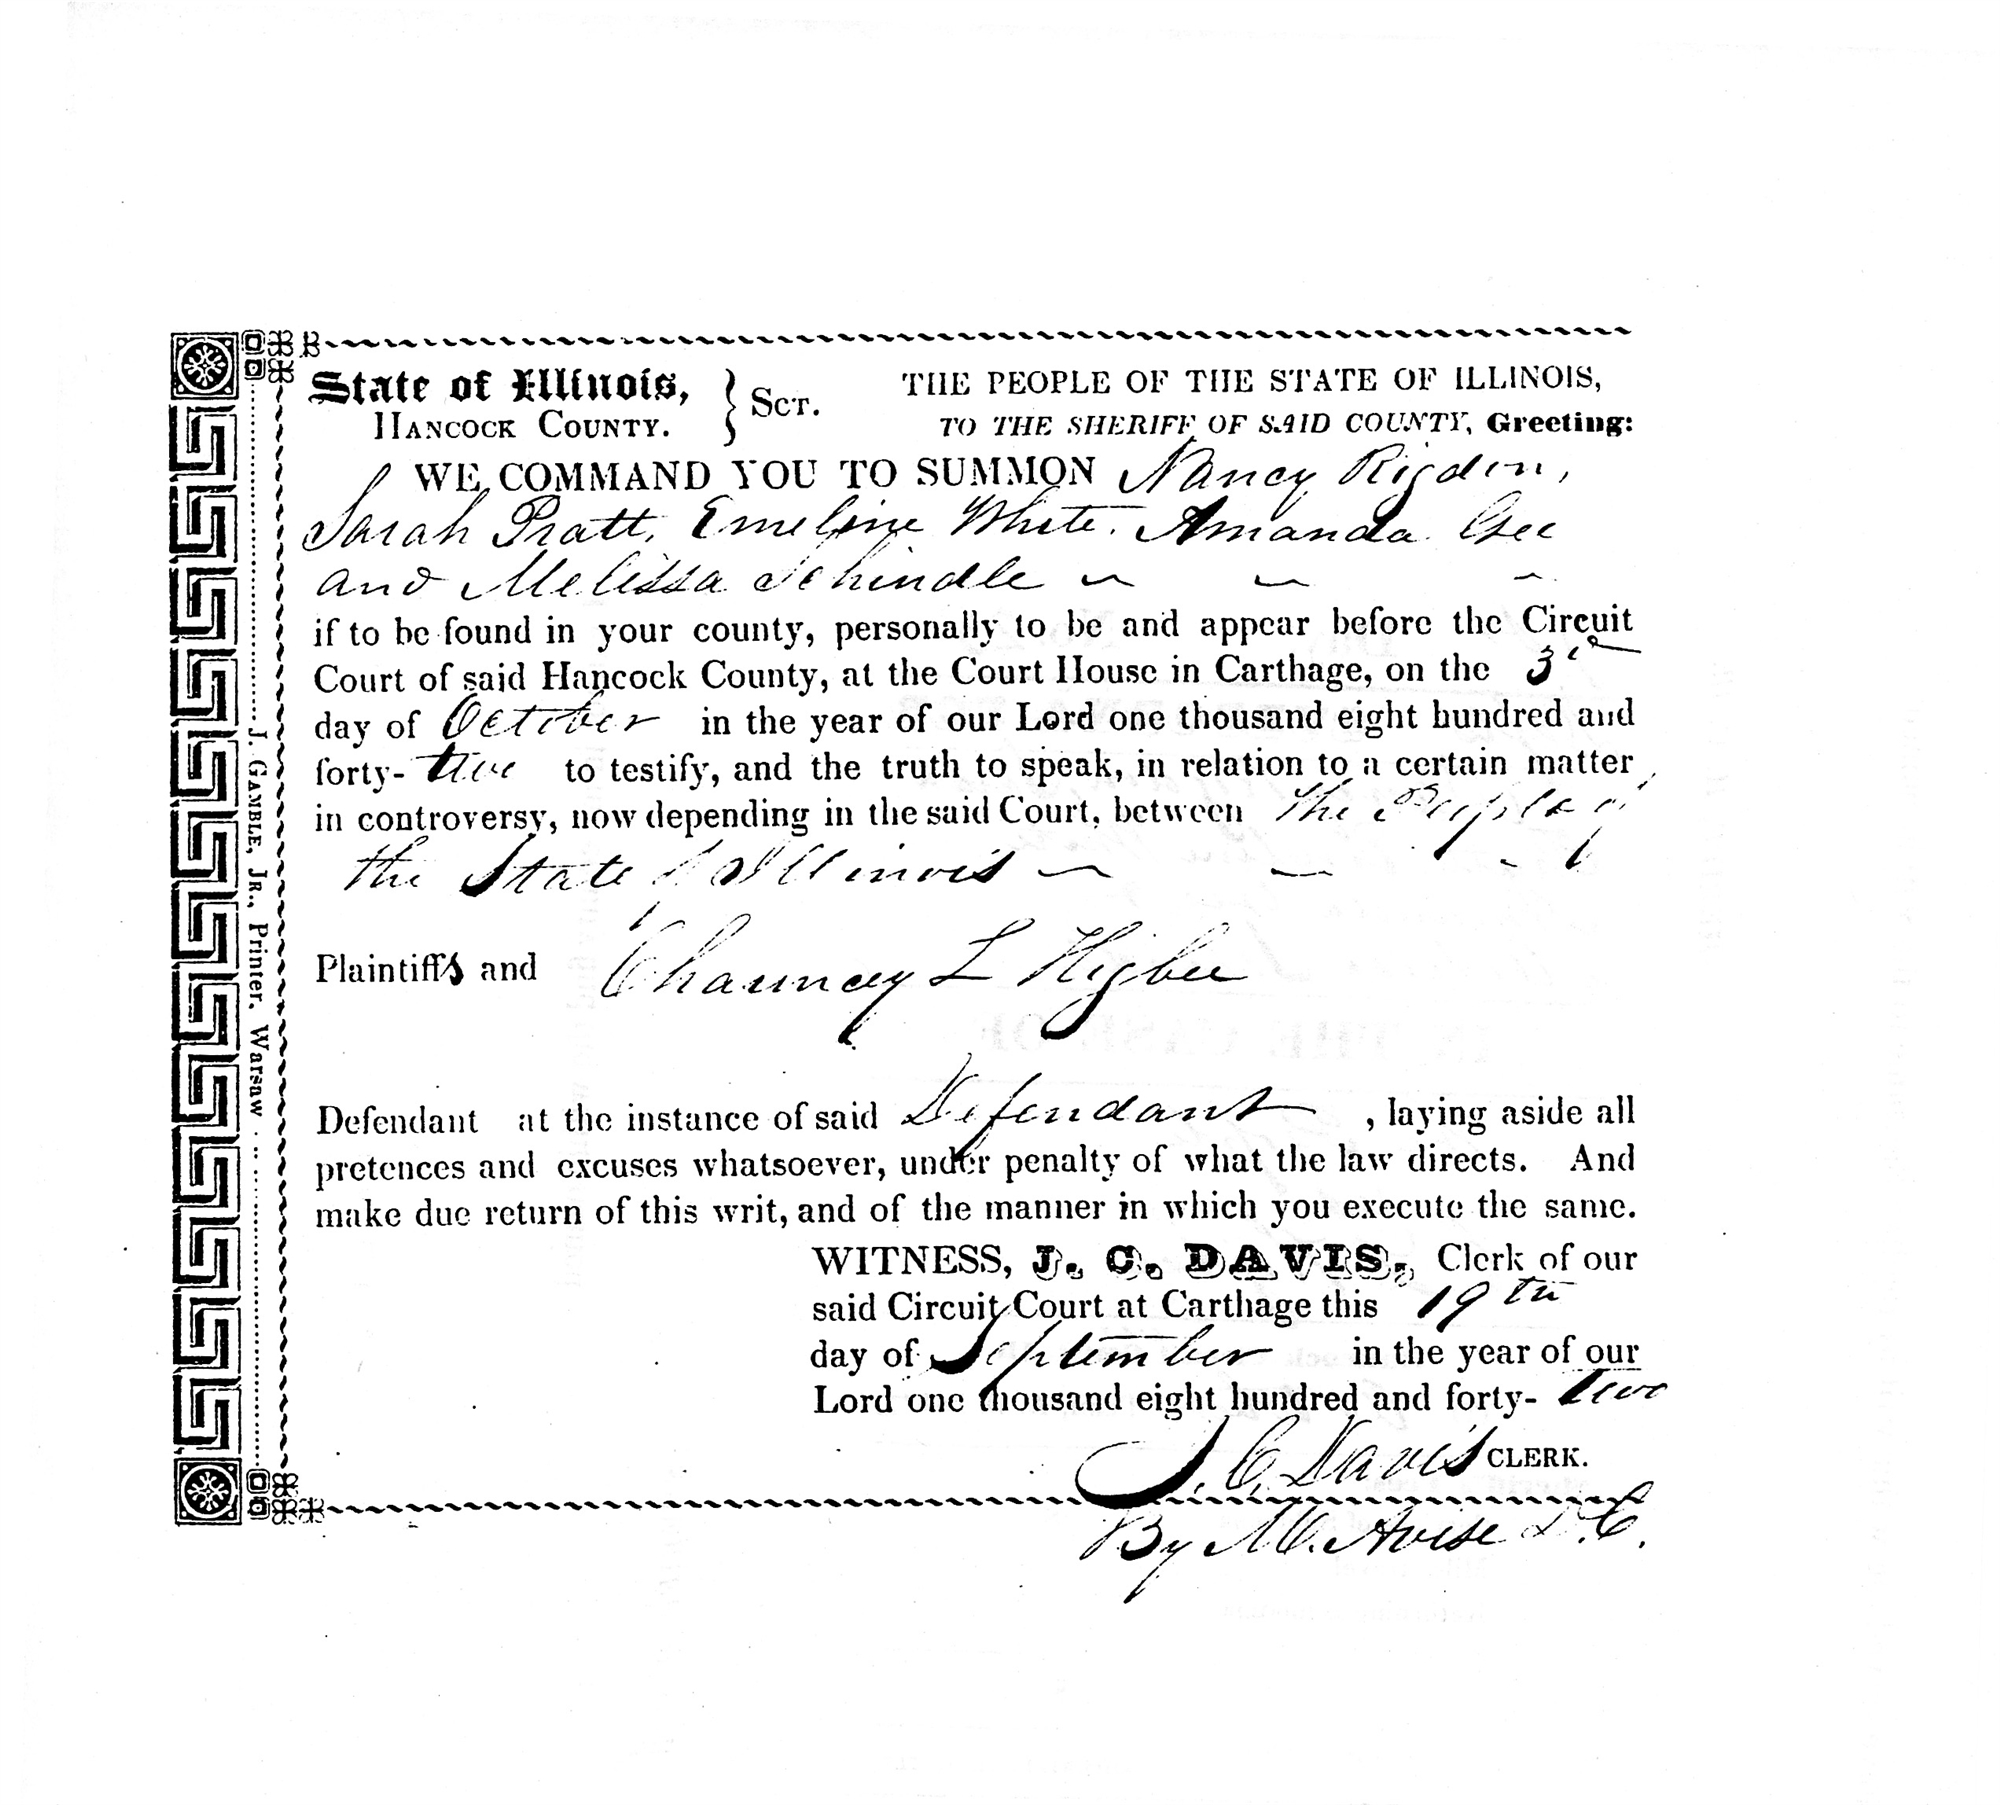 State of Illinois, } Sct. THE PEOPLE OF THE STATE OF ILLINOIS,
HANCOCK COUNTY. TO THE SHERIFF OF SAID COUNTY, Greeting:
WE COMMAND YOU TO SUMMON Nancy Rigdon,
Sarah Pratt, Emeline White, Amanda Gee
and Melissa Schindle
if to be found in your county, personally to be and appear before the Circuit
Court of said Hancock County, at the Court House in Carthage, on the 3rd
day of October in the year of our Lord one thousand eight hundred and
forty-two to testify, and the truth to speak, in relation to a certain matter
in controversy, now depending in the said Court, between the People of
the State of Illinois
Plaintiffs and Chauncey L Higbee
Defendant at the instance of said Defendant, laying aside all
pretences and excuses whatsoever, under penalty of what the law directs. And
make due return of this writ, and of the manner in which you execute the same.
WITNESS, J. C. DAVIS, Clerk of our
said Circuit Court at Carthage this 19th
day of September in the year of our
Lord one thousand eight hundred and forty-two
J. C. Davis CLERK.
By M. Avise D.C.
J. GAMBLE, JR., Printer, Warsaw